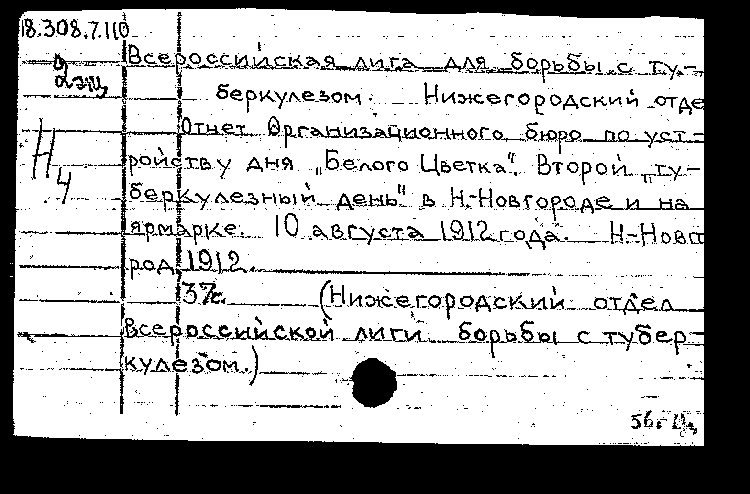 18.308.7.110
2 эц
Н4
Всероссийская лига для борьбы с ту-
беркулезом. Нижегородский отде
Отчет Организационного бюро по уст-
ройству дня „Белого Цветка". Второй „ту-
беркулезный день" в Н-Новгороде и на
ярмарке. 10 августа 1912 года. Н-Новг
род, 1912.
37с. (Нижегородский отдел
Всероссийской лиги борьбы с тубер-
кулезом.)
56г